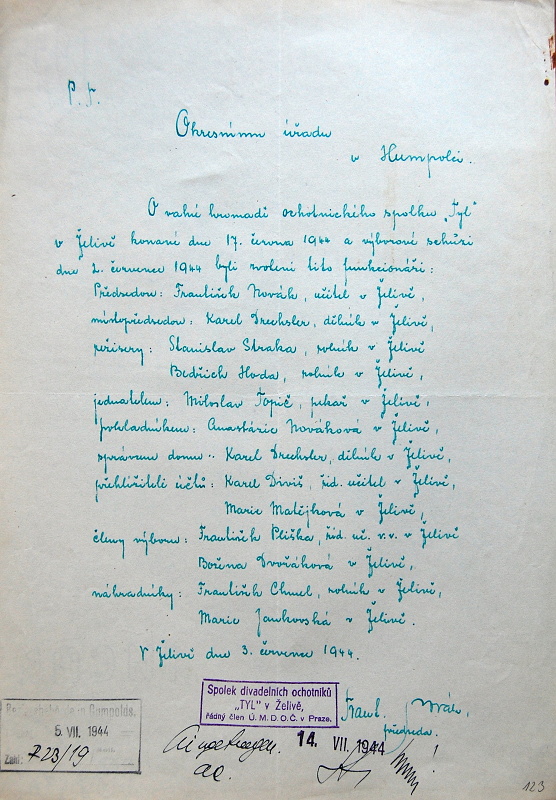 P. T.
Okresnímu úřadu
v Humpolci.
O valné hromadě ochotnického spolku „Tyl"
v Želivě konané dne 17. června 1944 a výborové schůzi
dne 2. července 1944 byli zvoleni tito funkcionáři:
Předsedou: František Novák, učitel v Želivě,
místopředsedou: Karel Drechsler, dělník v Želivě,
režisery: Stanislav Straka, rolník v Želivě
Bedřich Hoda, rolník v Želivě,
jednatelem: Miloslav Topič, pekař v Želivě,
pokladníkem: Anastázie Nováková v Želivě,
správcem domu: Karel Drechsler, dělník v Želivě,
přehlížiteli účtů: Karel Diviš, říd. učitel v Želivě,
Marie Matějková v Želivě,
členy výboru: František Pliška, říd. uč. v.v. v Želivě
Božena Dvořáková v Želivě,
náhradníky: František Chmel, rolník v Želivě,
Marie Jankovská v Želivě.
V Želivě dne 3. července 1944.
Spolek divadelních ochotníků
„TYL" v Želivě,
řádný člen Ú. M. D. O. Č. v Praze.
Frant. Novák,
předseda.
in Humpoletz.
5. VII. 1944
Zahl: 723/19
Eingetragen.
14. VII. 1944
aa.
123